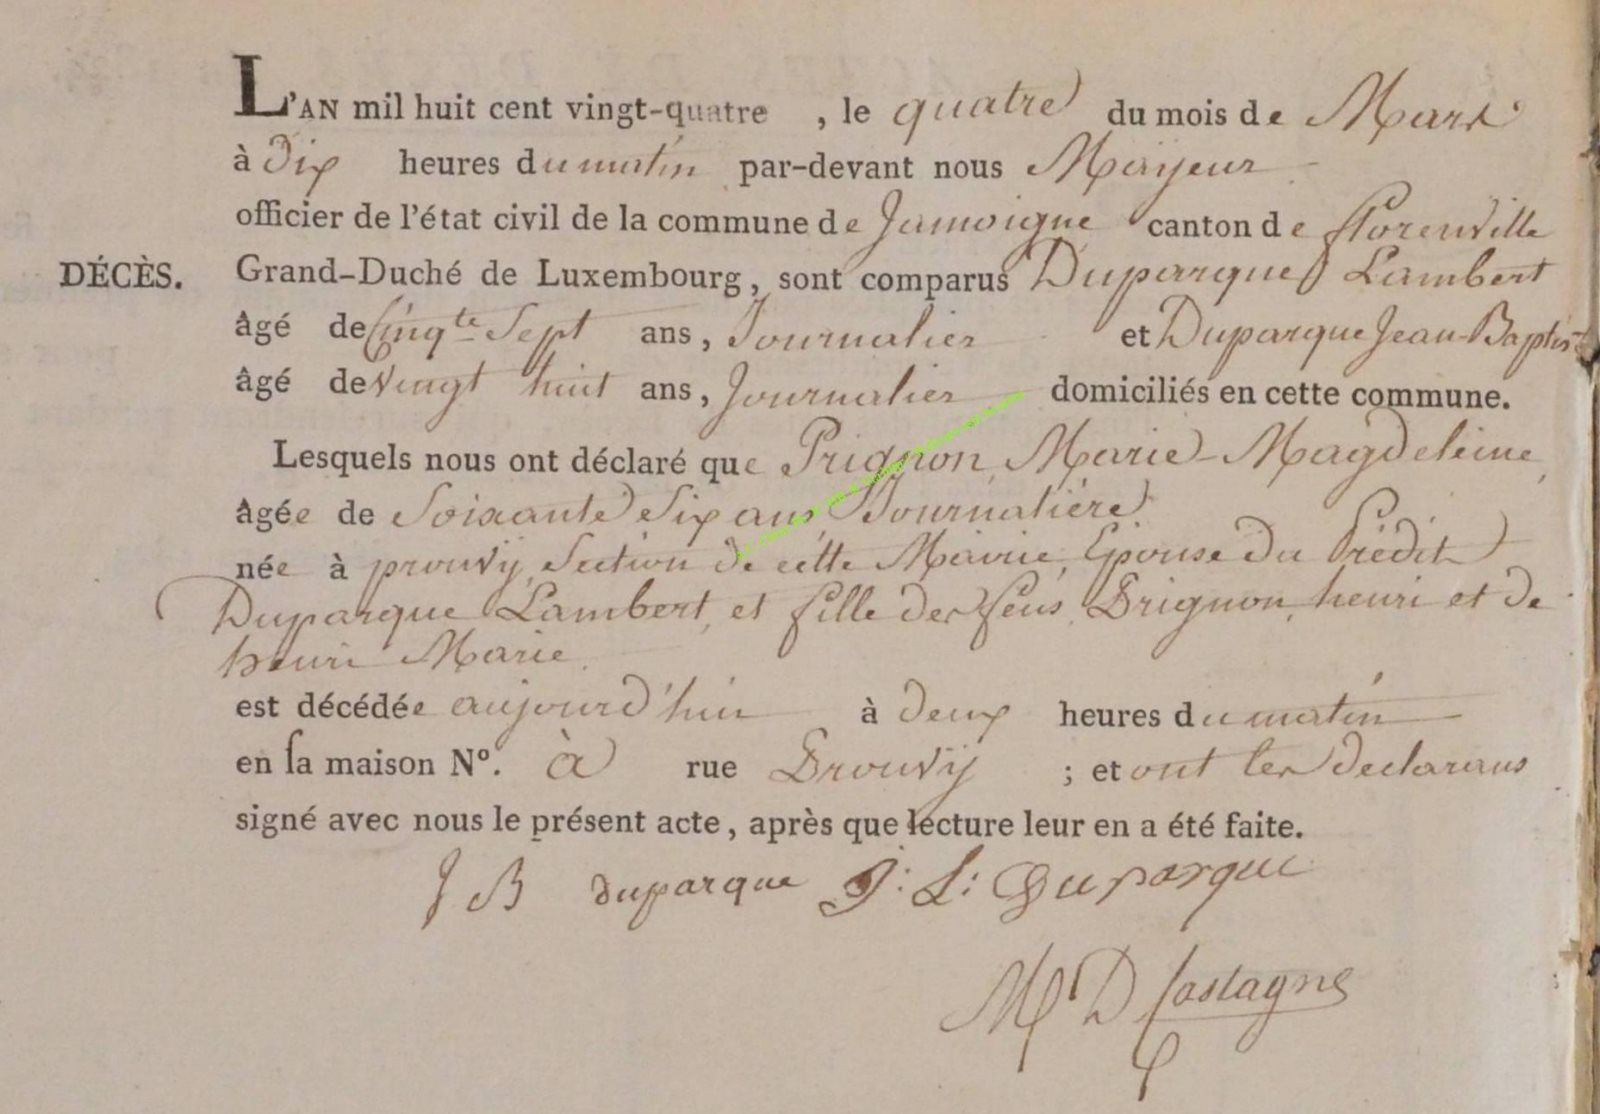 L'AN mil huit cent vingt-quatre, le quatre du mois de Mars
à Dix heures du matin par-devant nous Mayeur
officier de l'état civil de la commune de Jamoigne canton de florenville
DÉCÈS.
Grand-Duché de Luxembourg, sont comparus Duparque Lambert
âgé de Cinqte Sept ans, Journalier et Duparque Jean-Baptist
âgé de Vingt huit ans, Journalier domiciliés en cette commune.
Lesquels nous ont déclaré que Prignon Marie-Magdeleine
âgée de Soixante Six ans Journalière
née à prouvy, Section de cette Mairie, Epouse du Prédit
Duparque Lambert, et fille des feus Prignon, henri et de
henri Marie.
est décédée aujourd'hui à deux heures du matin
en sa maison Nº. à rue Prouvy ; et ont les declarans
signé avec nous le présent acte, après que lecture leur en a été faite.
J B duparque J: L: Duparque
M D Castagne